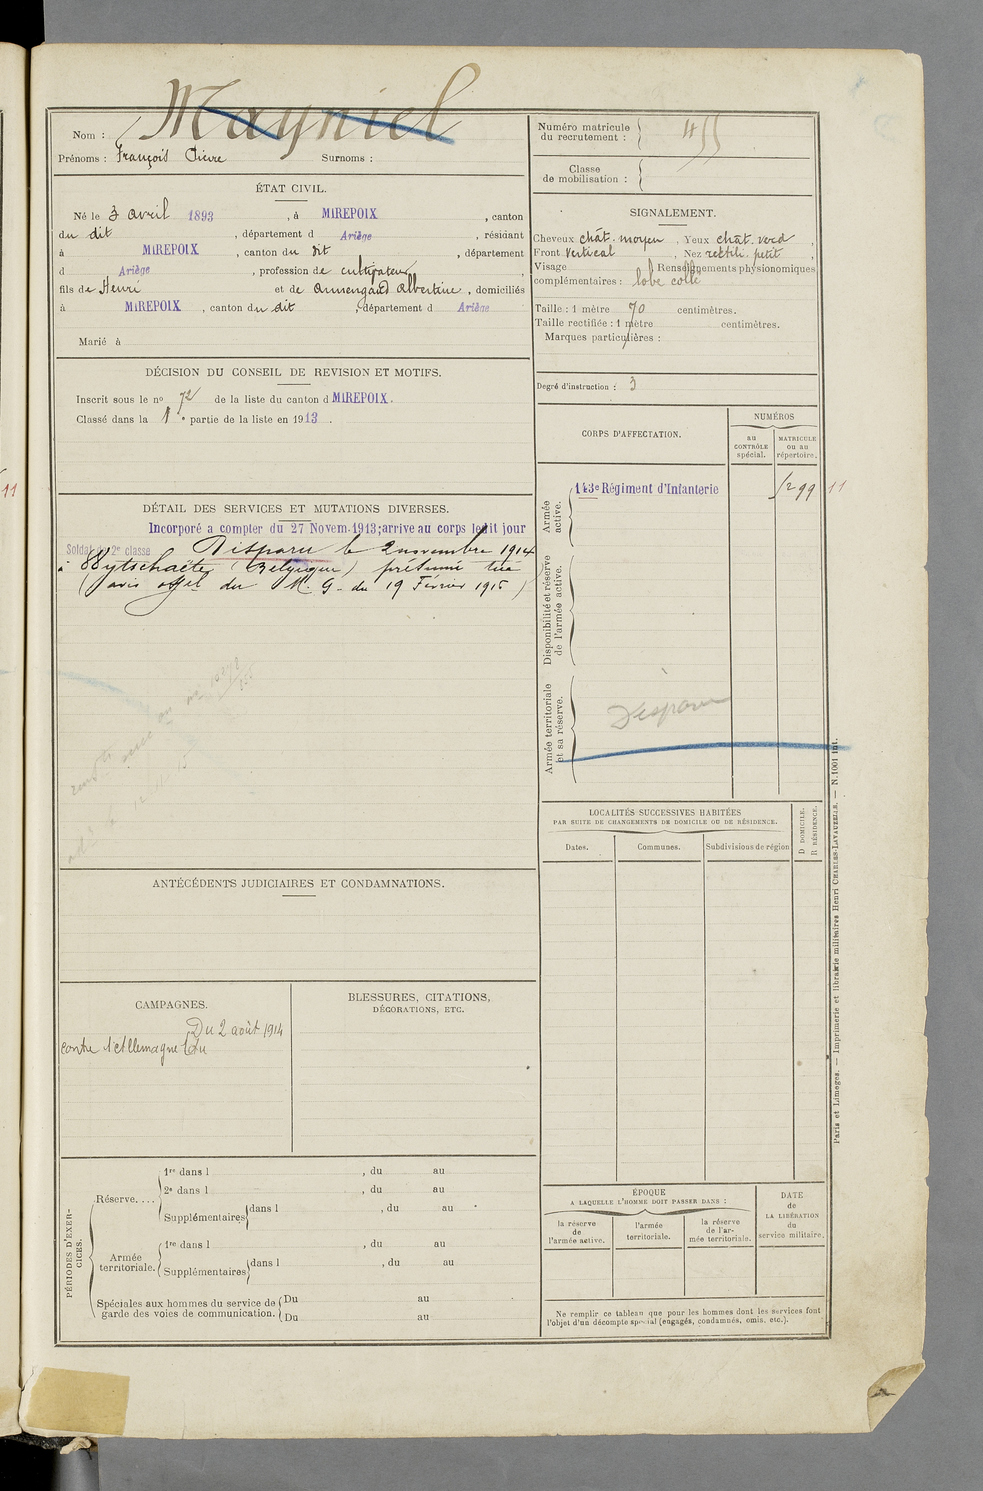 Nom : Mayniel
Prénoms : François Pierre Surnoms :
ÉTAT CIVIL.
Né le 3 avril 1893, à MIREPOIX, canton
du dit, département d Ariège, résidant
à MIREPOIX, canton du dit, département
d Ariège, profession de cultivateur,
fils de Henri et de Armengaud Albertine, domiciliés
à MIREPOIX, canton du dit, département d Ariège
Marié à
DÉCISION DU CONSEIL DE REVISION ET MOTIFS.
Inscrit sous le no 72 de la liste du canton d MIREPOIX.
Classé dans la 1e partie de la liste en 1913.
DÉTAIL DES SERVICES ET MUTATIONS DIVERSES.
Incorporé a compter du 27 Novem. 1913; arrive au corps ledit jour
Soldat de 2e classe Disparu le 2 novembre 1914
à Wytschaëte (Belgique) présumé tué
(avis offel du M. G. du 19 Février 1915)
ANTÉCÉDENTS JUDICIAIRES ET CONDAMNATIONS.
CAMPAGNES.
Du 2 août 1914
contre l'Allemagne au
BLESSURES, CITATIONS,
DÉCORATIONS, ETC.
PÉRIODES D'EXERCICES.
Réserve....
1re dans l , du au
2e dans l , du au
Supplémentaires dans l , du au
Armée
territoriale.
1re dans l , du au
Supplémentaires dans l , du au
Spéciales aux hommes du service de
garde des voies de communication.
Du au
Du au
Numéro matricule
du recrutement : 455
Classe
de mobilisation :
SIGNALEMENT.
Cheveux chât. moyen, Yeux chât. verd,
Front Vertical, Nez rectili. petit,
Visage Renseignements physionomiques
complémentaires : lobe collé
Taille : 1 mètre 70 centimètres.
Taille rectifiée : 1 mètre centimètres.
Marques particulières :
Degré d'instruction : 3
CORPS D'AFFECTATION.
NUMÉROS
au
CONTRÔLE
spécial.
MATRICULE
ou au
répertoire.
Armée
active.
143e Régiment d'Infanterie
1299 11
Disponibilité et réserve
de l'armée active.
Armée territoriale
et sa réserve.
Disparu
LOCALITÉS SUCCESSIVES HABITÉES
PAR SUITE DE CHANGEMENTS DE DOMICILE OU DE RÉSIDENCE.
D DOMICILE.
R RÉSIDENCE.
Dates. Communes. Subdivisions de région
ÉPOQUE
A LAQUELLE L'HOMME DOIT PASSER DANS :
la réserve
de
l'armée active.
l'armée
territoriale.
la réserve
de l'ar-
mée territoriale.
DATE
de
LA LIBÉRATION
du
service militaire.
Ne remplir ce tableau que pour les hommes dont les services font
l'objet d'un décompte spécial (engagés, condamnés, omis, etc.).
Paris et Limoges. — Imprimerie et librairie militaires Henri CHARLES-LAVAUZELLE. — N. 1001 int.
11